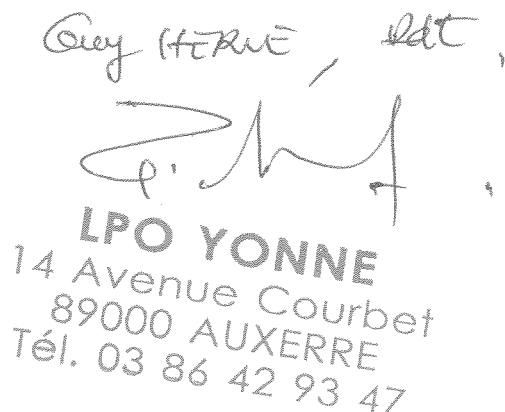 Guy HERVÉ, Pdt
LPO YONNE
14 Avenue Courbet
89000 AUXERRE
Tél. 03 86 42 93 47